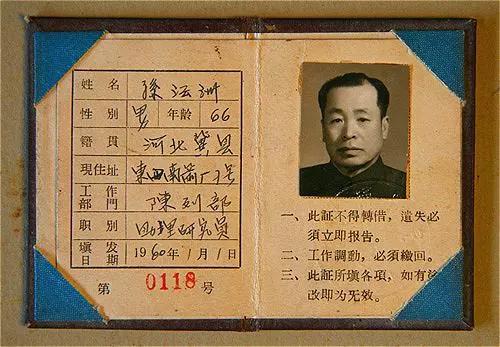 姓名 孫瀛洲
性別 男 年齡 66
籍貫 河北冀县
現住址 東四南
工作部門 陳列部
职别 助理研究員
填发日期 1960年1月1日
第 0118 号
一、此証不得轉借，遺失必
須立即报告。
二、工作調動，必須繳回。
三、此証所塡各項，如有
改即为无效。